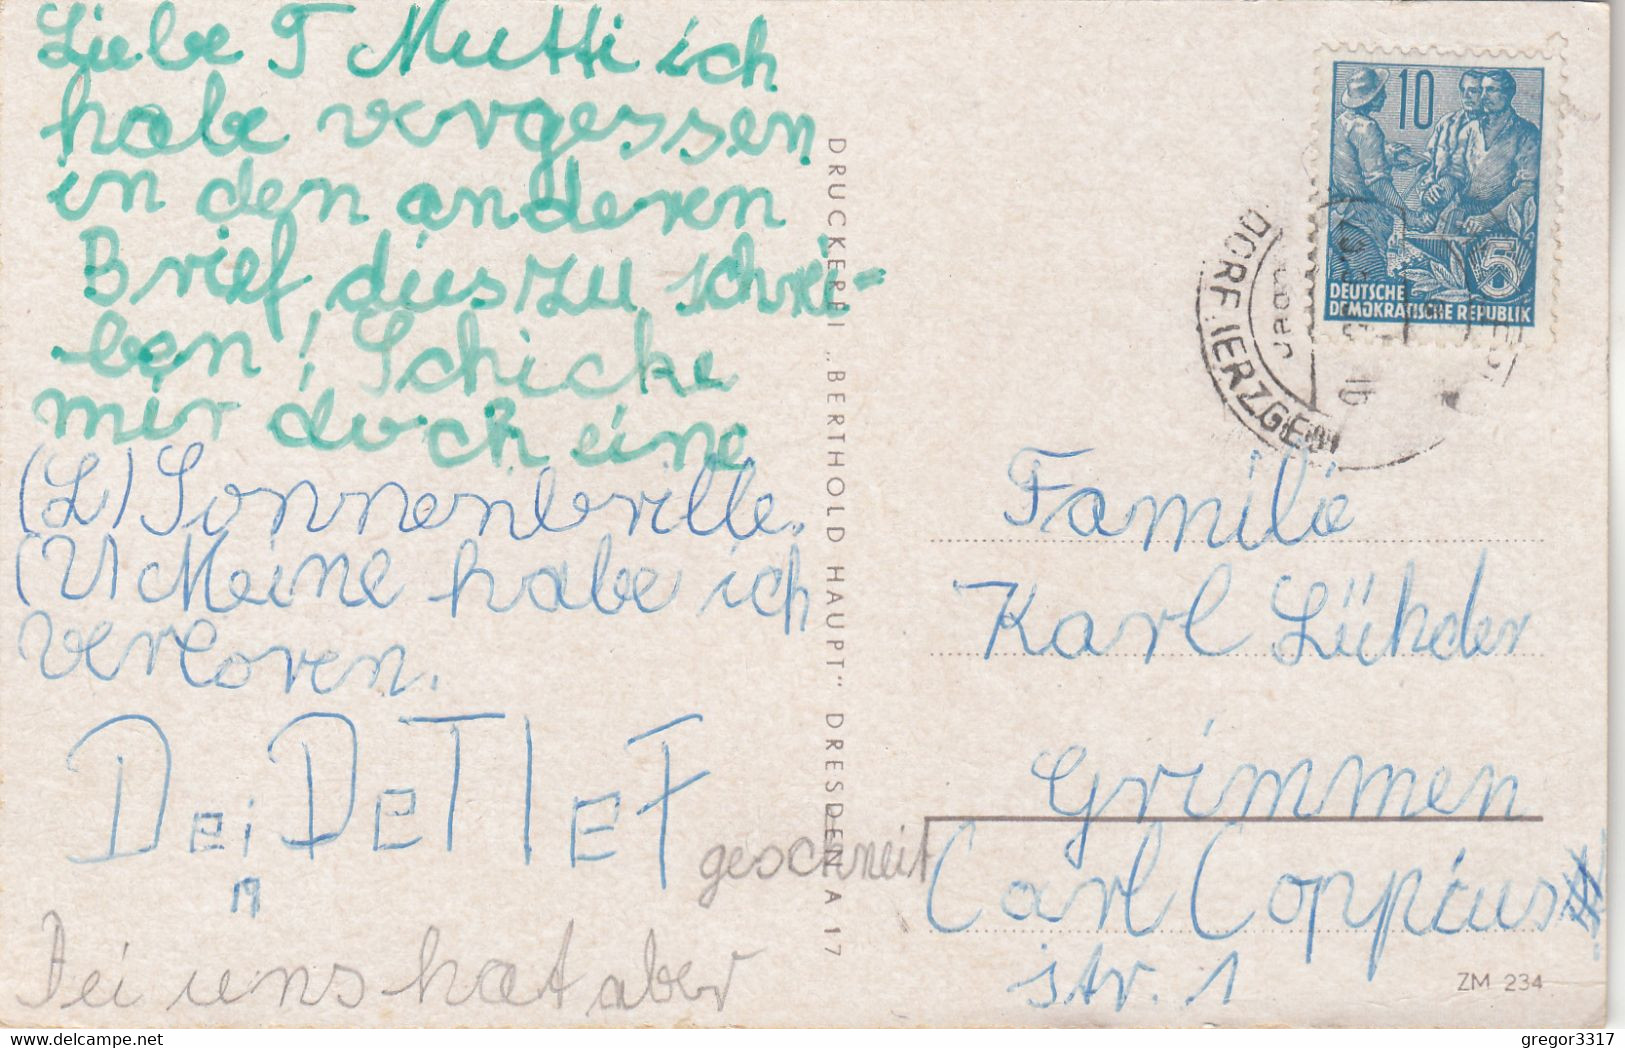 Liebe T Mutti ich
habe vergessen
in den anderen
Brief, dies zu schrei-
ben! Schicke
mir doch eine
(L) Sonnenbrille.
(V) Meine habe ich
verloren.
Dei DeTlEF
19
geschneit
Bei uns hat aber
DRUCKEREI „BERTHOLD HAUPT“ DRESDEN A 17
10
5
DEUTSCHE
DEMOKRATISCHE REPUBLIK
DORF (ERZGEB
Familie
Karl Lühder
Grimmen
Carl Coppius
str. 1
ZM 234
gregor3317